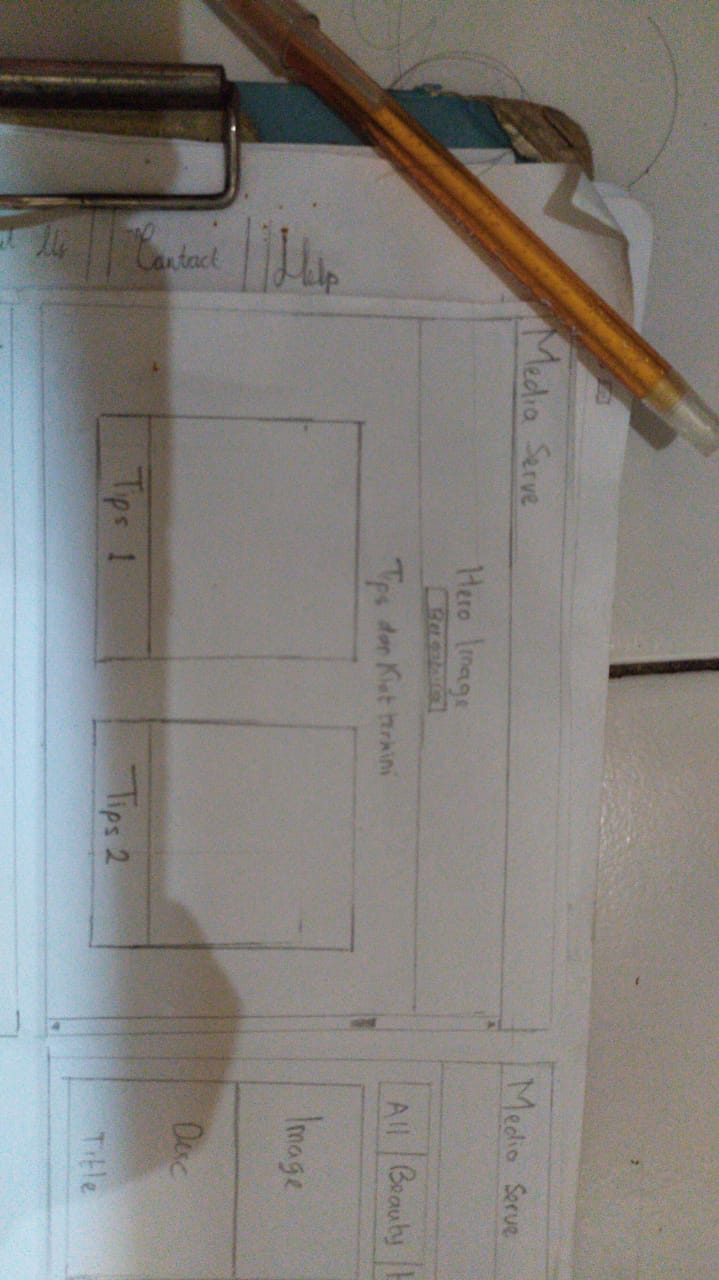 Us || Contact || Help
Media Serve
Hero Image
Tips dan Kiat terkini
Tips 1
Tips 2
Media Serve
All | Beauty |
Image
Desc
Title